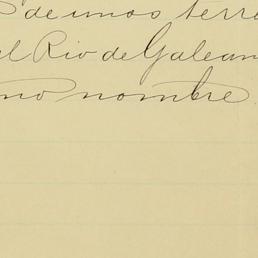 de unos terre
el Rio de Galean
mo nombre.